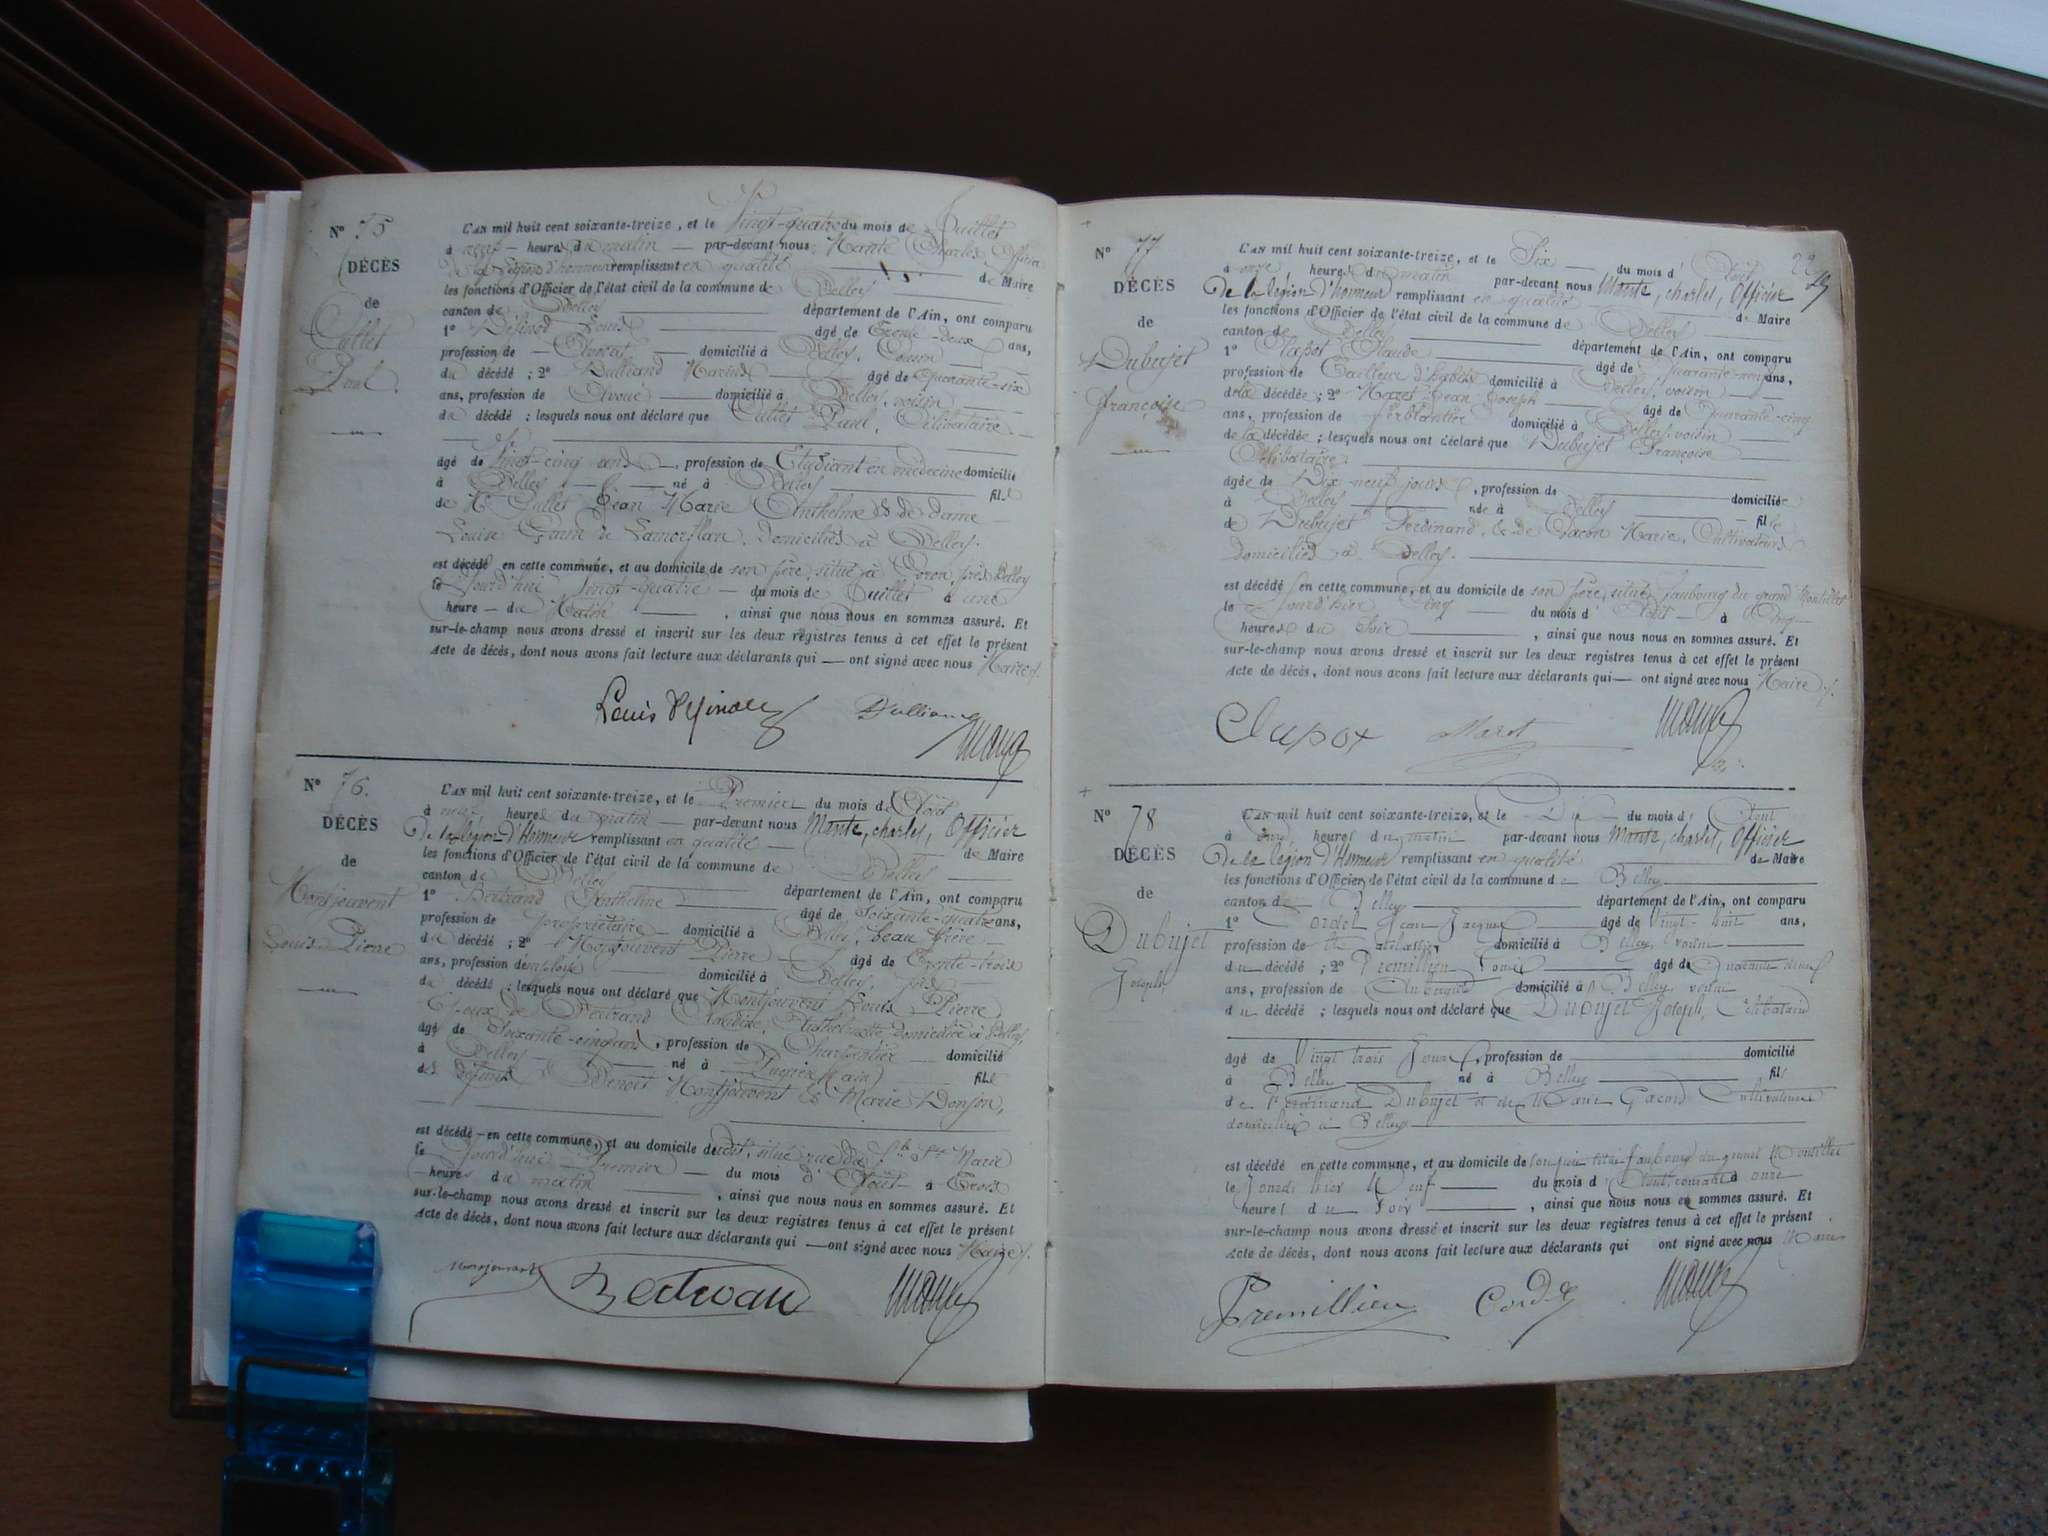 Nº 75
DÉCÈS
de
Cullet
Paul.
L'AN mil huit cent soixante-treize, et le Vingt-quatre du mois de Juillet
à neuf heures du matin par-devant nous Mante Charles Officier
de la Légion d'honneur remplissant en qualité de Maire
les fonctions d'Officier de l'état civil de la commune de Belley
canton de Belley département de l'Ain, ont comparu
1º Louis âgé de Trente-deux ans,
profession de Avocat domicilié à Belley, Cousin
du décédé ; 2º âgé de Quarante-six
ans, profession de Avoué domicilié à Belley, voisin
du décédé ; lesquels nous ont déclaré que Cullet Paul, Célibataire
âgé de Vingt-cinq ans, profession de Etudiant en médecine domicilié
à Belley né à Belley fils
de Mr Cullet Jean Marie Anthelme & de dame
Louise domiciliés à Belley.
est décédé en cette commune, et au domicile de son père, situé à Coron, près Belley
le Jourd'hui Vingt-quatre du mois de Juillet à une
heure du Matin, ainsi que nous nous en sommes assuré. Et
sur-le-champ nous avons dressé et inscrit sur les deux registres tenus à cet effet le présent
Acte de décès, dont nous avons fait lecture aux déclarants qui ont signé avec nous Maire.
Louis
Nº 76.
DÉCÈS
de
Montjouvent
Louis Pierre
L'AN mil huit cent soixante-treize, et le Premier du mois d'Août
à heures du matin par-devant nous Mante, charles, Officier
De la légion d'Honneur remplissant en qualité de Maire
les fonctions d'Officier de l'état civil de la commune de Belley
canton de Belley département de l'Ain, ont comparu
1º Bertrand Anthelme âgé de Soixante-quatre ans,
profession de propriétaire domicilié à Belley, beau frère
du décédé ; 2º Montjouvent Pierre âgé de Trente-trois
ans, profession d'employé domicilié à Belley, fils
du décédé ; lesquels nous ont déclaré que Montjouvent Louis Pierre
Epoux de Bertrand Claudine Anthelmette, domiciliée à Belley
âgé de Soixante-cinq ans, profession de Charpentier domicilié
à Belley né à Pugieu (Ain) fils
des défunts Benoit Montjouvent & Marie
est décédé en cette commune, et au domicile de situé rue Ste Marie
le Jourd'hui Premier du mois d'Août à Trois
heures du matin, ainsi que nous nous en sommes assuré. Et
sur-le-champ nous avons dressé et inscrit sur les deux registres tenus à cet effet le présent
Acte de décès, dont nous avons fait lecture aux déclarants qui ont signé avec nous Maire.
Nº 77
DÉCÈS
de
Dubujet
Françoise
L'AN mil huit cent soixante-treize, et le Six du mois d'Août
à onze heures du matin par-devant nous Mante, charles, Officier
De la légion d'honneur remplissant en qualité de Maire
les fonctions d'Officier de l'état civil de la commune de Belley
canton de Belley département de l'Ain, ont comparu
1º Clapot Claude âgé de Quarante-neuf ans,
profession de Tailleur d'habits domicilié à Belley, voisin
de la décédée ; 2º Marot Jean Joseph âgé de Quarante-cinq
ans, profession de Ferblantier domicilié à Belley, voisin
de la décédée ; lesquels nous ont déclaré que Dubujet Françoise
Célibataire
âgée de Dix-neuf jours, profession de domiciliée
à Belley née à Belley fille
de Dubujet Ferdinand, & de Gacon Marie, Cultivateurs
domiciliés à Belley.
est décédé en cette commune, et au domicile de son père, situé faubourg du grand Montillet
le Jourd'hier Cinq du mois d'Août à Cinq
heures du Soir, ainsi que nous nous en sommes assuré. Et
sur-le-champ nous avons dressé et inscrit sur les deux registres tenus à cet effet le présent
Acte de décès, dont nous avons fait lecture aux déclarants qui ont signé avec nous Maire.
Clapot Marot
Nº 78
DÉCÈS
de
Dubujet
Joseph
L'AN mil huit cent soixante-treize, et le Dix du mois d'Août
à heures du matin par-devant nous Mante, charles, Officier
De la légion d'Honneur remplissant en qualité de Maire
les fonctions d'Officier de l'état civil de la commune de Belley
canton de Belley département de l'Ain, ont comparu
1º Cordel Jean Jacques âgé de Vingt-huit ans,
profession de domicilié à Belley, voisin
du décédé ; 2º Premillieu âgé de Quarante deux
ans, profession de Aubergiste domicilié à Belley, voisin
du décédé ; lesquels nous ont déclaré que Dubujet Joseph, Célibataire
âgé de Vingt trois Jours, profession de domicilié
à Belley né à Belley fils
de Ferdinand Dubujet et de Marie Gacon, Cultivateurs
domiciliés à Belley
est décédé en cette commune, et au domicile de son père situé faubourg du grand Montillet
le Jourd'hier Neuf du mois d'Août courant à onze
heures du Soir, ainsi que nous nous en sommes assuré. Et
sur-le-champ nous avons dressé et inscrit sur les deux registres tenus à cet effet le présent
Acte de décès, dont nous avons fait lecture aux déclarants qui ont signé avec nous Maire
Premillieu Cordel